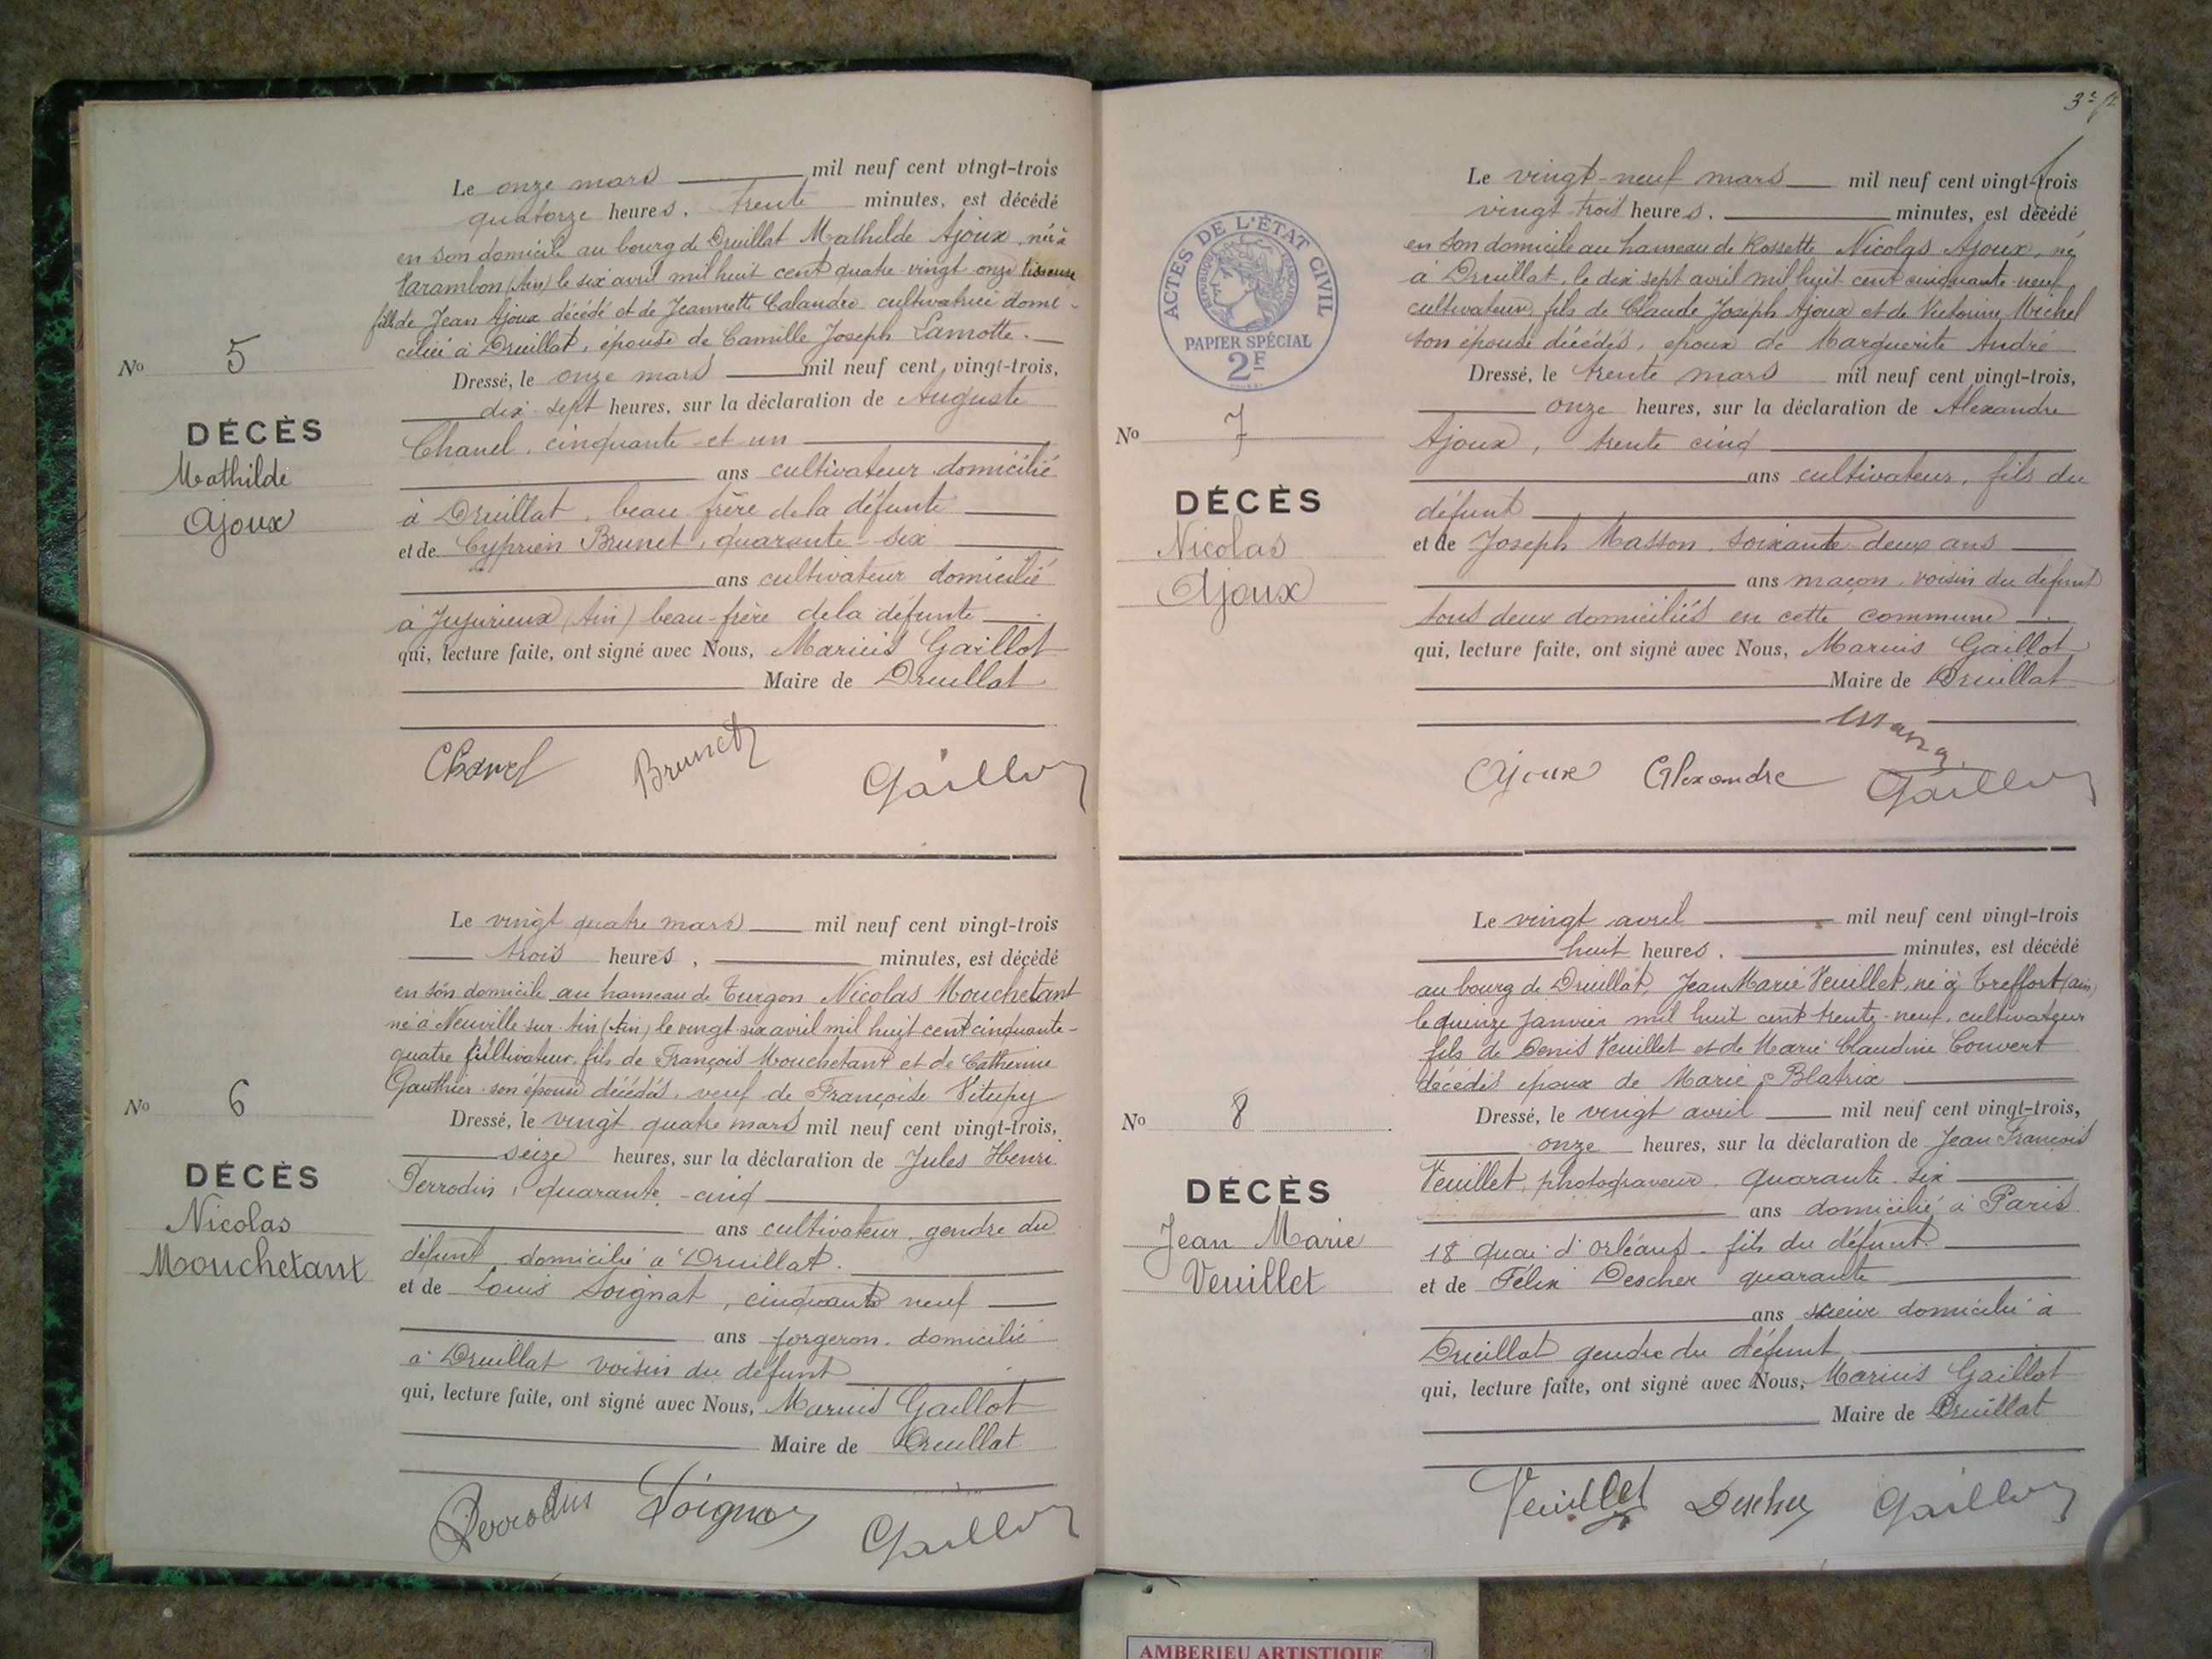 Le onze mars mil neuf cent vingt-trois
quatorze heures, trente minutes, est décédé
en son domicile au bourg de Druillat Mathilde Ajoux, née à
Varambon (Ain) le six avril mil huit cent quatre vingt onze tisseuse
fille de Jean Ajoux décédé et de Jeannette Calandre cultivatrice domi-
ciliée à Druillat, épouse de Camille Joseph Lamotte.
No 5
DÉCÈS
Mathilde
Ajoux
Dressé, le onze mars mil neuf cent vingt-trois,
dix-sept heures, sur la déclaration de Auguste
Chanel, cinquante et un
ans cultivateur domicilié
à Druillat, beau frère de la défunte
et de Cyprien Brunet, quarante-six
ans cultivateur domicilié
à Jujurieux (Ain) beau-frère de la défunte
qui, lecture faite, ont signé avec Nous, Marius Gaillot
Maire de Druillat
Chanel Brunet Gaillot
Le vingt quatre mars mil neuf cent vingt-trois
trois heures, minutes, est décédé
en son domicile au hameau de Turgon Nicolas Mouchetant
né à Neuville sur Ain (Ain) le vingt six avril mil huit cent cinquante-
quatre cultivateur, fils de François Mouchetant et de Catherine
Gauthier son épouse décédés, veuf de Françoise
No 6
DÉCÈS
Nicolas
Mouchetant
Dressé, le vingt quatre mars mil neuf cent vingt-trois,
seize heures, sur la déclaration de Jules Henri
Perrodin, quarante-cinq
ans cultivateur, gendre du
défunt domicilié à Druillat.
et de Louis Soignat, cinquante neuf
ans forgeron, domicilié
à Druillat voisin du défunt
qui, lecture faite, ont signé avec Nous, Marius Gaillot
Maire de Druillat
Perrodin Soignat Gaillot
3
ACTES DE L'ÉTAT CIVIL
RÉPUBLIQUE FRANÇAISE
PAPIER SPÉCIAL
2F
Le vingt-neuf mars mil neuf cent vingt-trois
vingt trois heures, minutes, est décédé
en son domicile au hameau de Rossette Nicolas Ajoux, né
à Druillat, le dix sept avril mil huit cent cinquante-neuf
cultivateur, fils de Claude Joseph Ajoux et de Victorine Michel
son épouse décédés, époux de Marguerite André
No 7
DÉCÈS
Nicolas
Ajoux
Dressé, le trente mars mil neuf cent vingt-trois,
onze heures, sur la déclaration de Alexandre
Ajoux, trente cinq
ans cultivateur, fils du
défunt
et de Joseph Masson, soixante-deux ans
ans maçon, voisin du défunt
tous deux domiciliés en cette commune
qui, lecture faite, ont signé avec Nous, Marius Gaillot
Maire de Druillat
Ajoux Alexandre Gaillot
Le vingt avril mil neuf cent vingt-trois
huit heures, minutes, est décédé
au bourg de Druillat, Jean Marie Veuillet, né à Treffort (Ain)
le quinze janvier mil huit cent trente-neuf, cultivateur
fils de Denis Veuillet et de Marie Claudine Convert
décédés époux de Marie Blatrix
No 8
DÉCÈS
Jean Marie
Veuillet
Dressé, le vingt avril mil neuf cent vingt-trois,
onze heures, sur la déclaration de Jean François
Veuillet, photograveur, quarante-six
ans domicilié à Paris
18 quai d'orléans - fils du défunt
et de Félix Descher quarante
ans scieur domicilié à
Druillat gendre du défunt
qui, lecture faite, ont signé avec Nous, Marius Gaillot
Maire de Druillat
Veuillet Descher Gaillot
AMBERIEU ARTISTIQUE